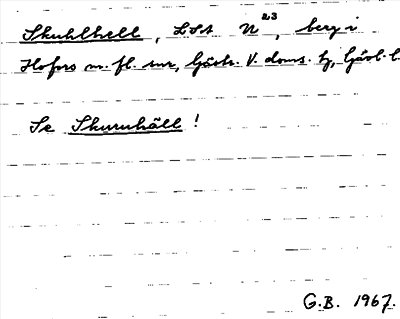 Skuhlhell, LSA N²³, berg i
Hofors m. fl. snr, Gästr. V. doms. tg, Gävl. l.
Se Skuruhäll!
G.B. 1967.